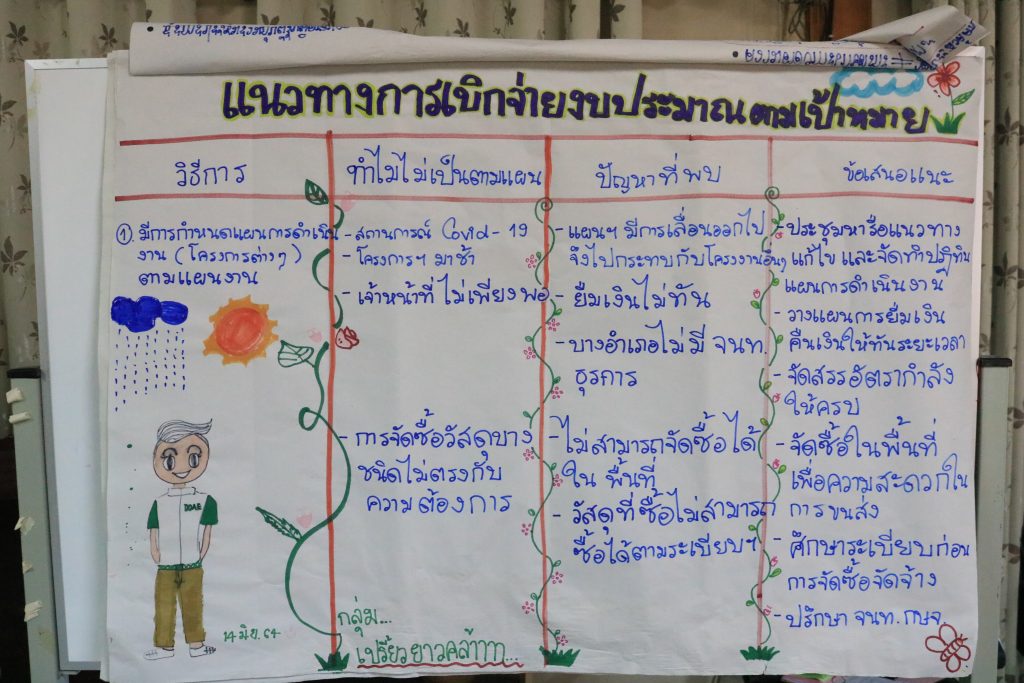 แนวทางการเบิกจ่ายงบประมาณตามเป้าหมาย
วิธีการ
① มีการกำหนดแผนการดำเนิน
งาน (โครงการต่างๆ)
ตามแผนงาน
DOAE
14 มิ.ย. 64
ทำไมไม่เป็นตามแผน
- สถานการณ์ Covid-19
- โครงการฯ มาช้า
- เจ้าหน้าที่ไม่เพียงพอ
- การจัดซื้อวัสดุบาง
ชนิดไม่ตรงกับ
ความต้องการ
กลุ่ม...
เปรี้ยวยาวคล้าาาา...
ปัญหาที่พบ
- แผนฯ มีการเลื่อนออกไป
จึงไปกระทบกับโครงงานอื่นๆ
- ยืมเงินไม่ทัน
- บางอำเภอไม่มี จนท.
ธุรการ
- ไม่สามารถจัดซื้อได้
ใน พื้นที่
- วัสดุที่ซื้อไม่สามารถ
ซื้อได้ตามระเบียบฯ
ข้อเสนอแนะ
- ประชุมหารือแนวทาง
แก้ไข และจัดทำปฏิทิน
แผนการดำเนินงาน
- วางแผนการยืมเงิน
คืนเงินให้ทันระยะเวลา
- จัดสรรอัตรากำลัง
ให้ครบ
- จัดซื้อในพื้นที่
เพื่อความสะดวกใน
การขนส่ง
- ศึกษาระเบียบก่อน
การจัดซื้อจัดจ้าง
- ปรึกษา จนท. กษจ.